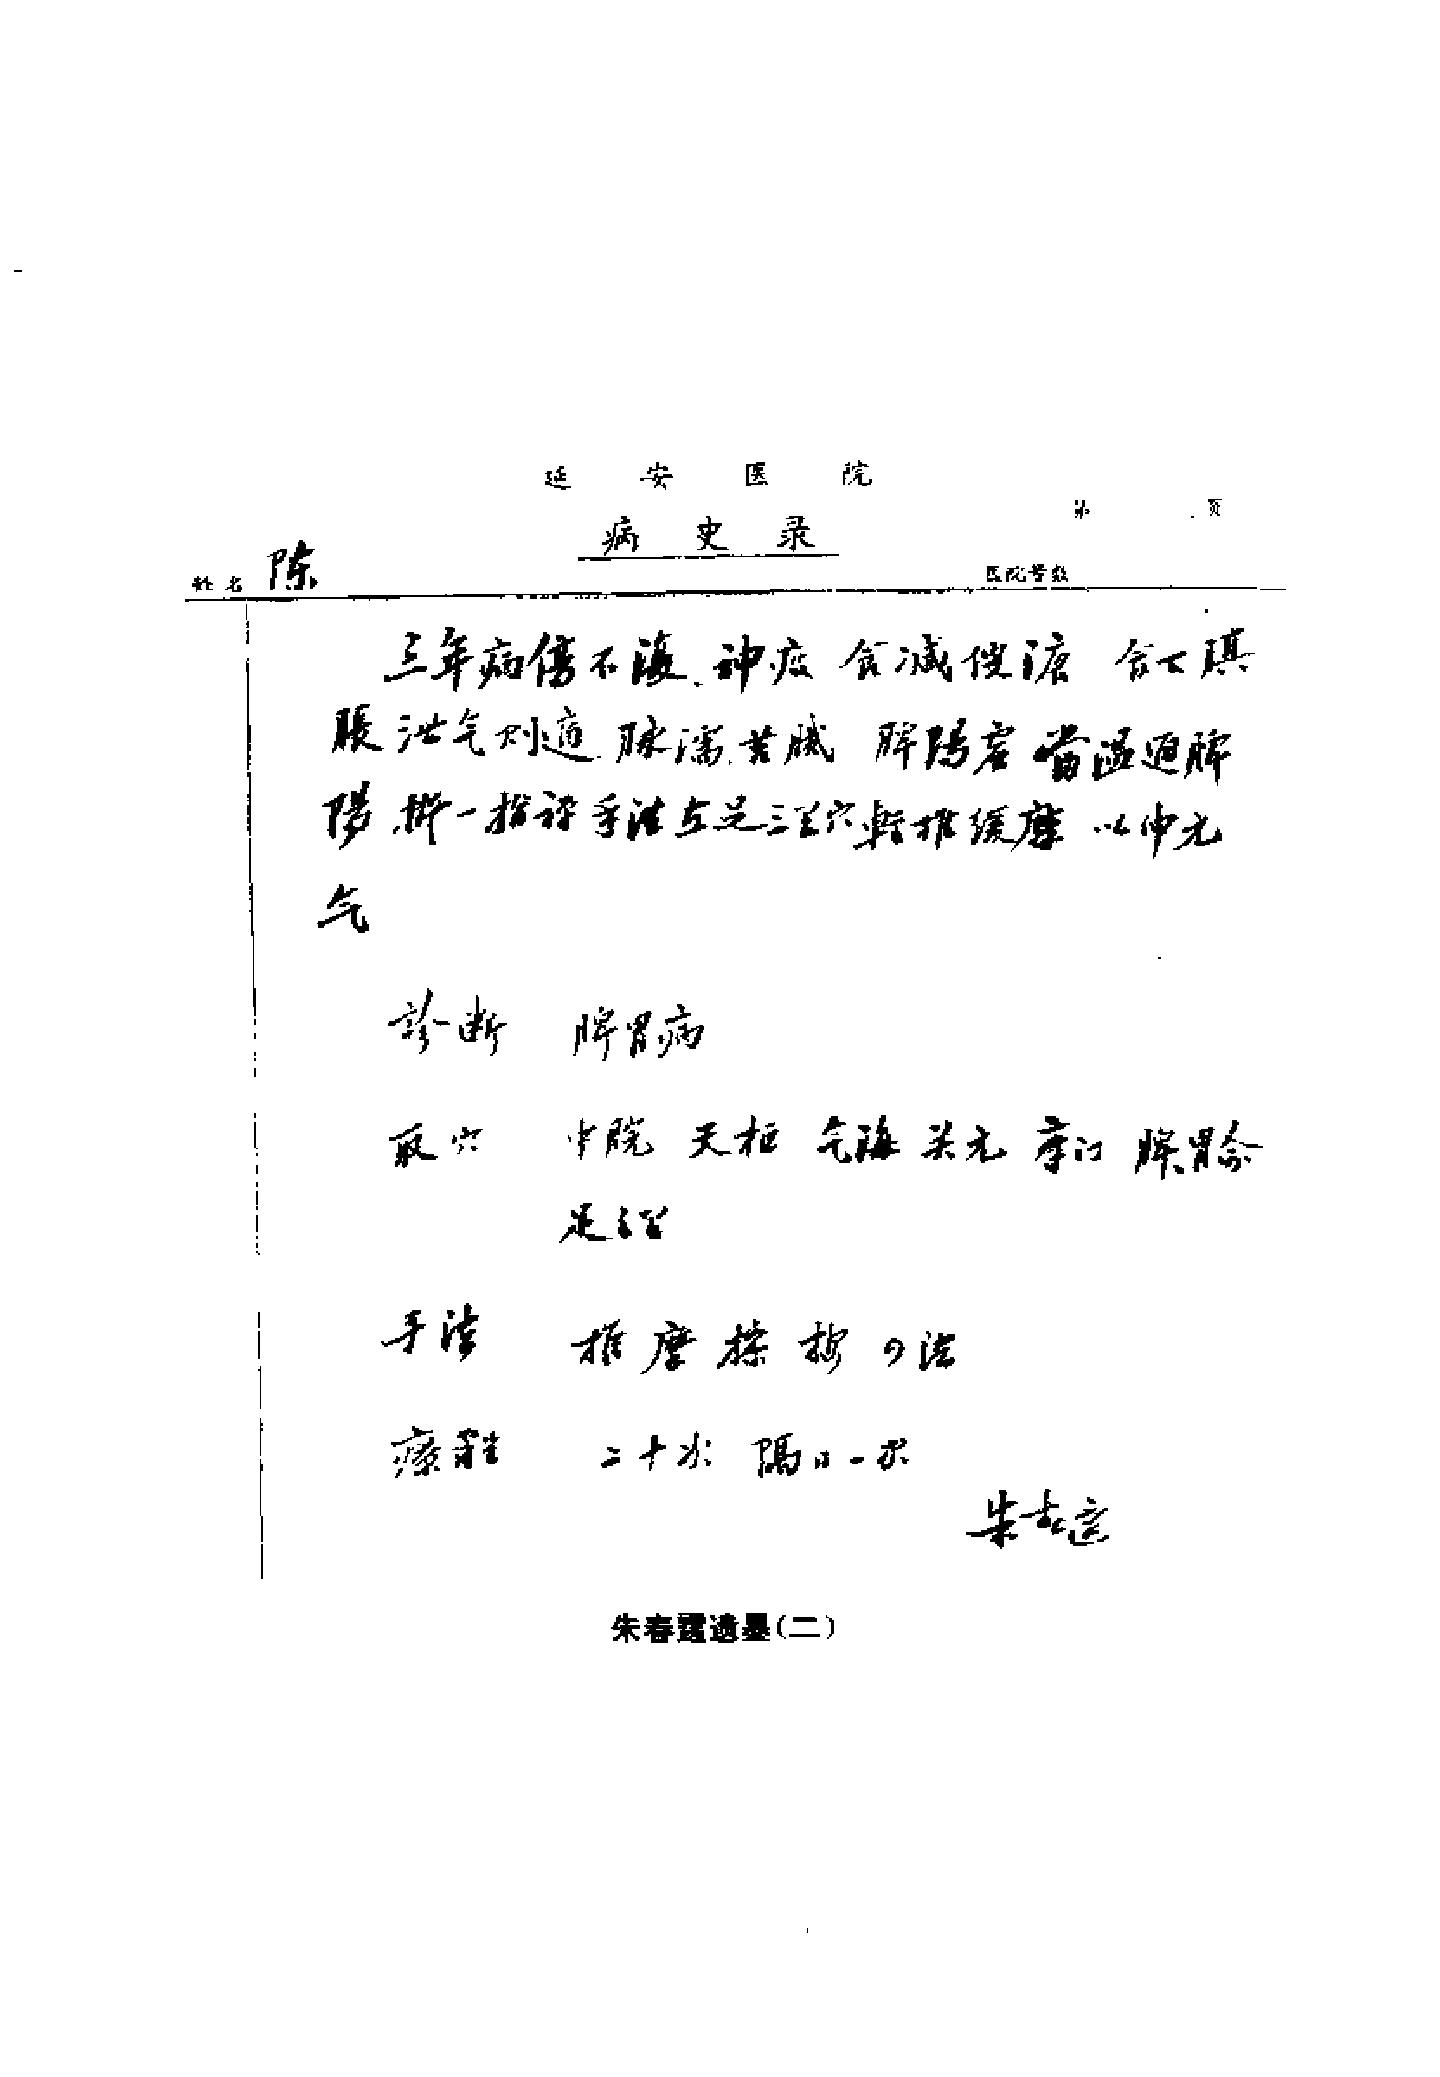 延安医院
第 页
病史录
姓名 陈 医院号数
三年病伤不復 神疲 食减 便溏 食入䐜
脹 泄气则適 脉濡 苔腻 脾陽虚 當温通脾
陽 擬一指禅手法 足三里穴 輕推缓摩 以伸元
气
診断 脾胃病
取穴 中脘 天枢 气海 关元 章门 脾胃俞
足三里
手法 推 摩 揉 按 四法
療程 二十次 隔日一次
朱春霆
朱春霆遗墨(二)